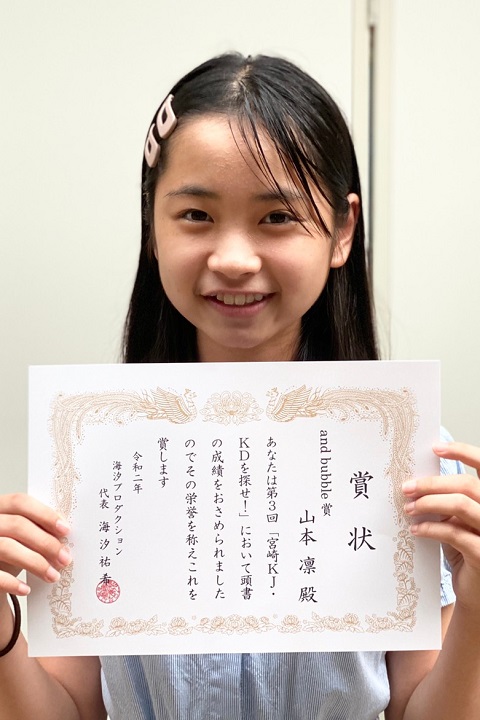 賞状
and bubble 賞
山本 凛 殿
あなたは第3回「宮崎KJ・
KDを探せ!」において頭書
の成績をおさめられました
のでその栄誉を称えこれを
賞します
令和二年
海汐プロダクション
代表 海汐祐希